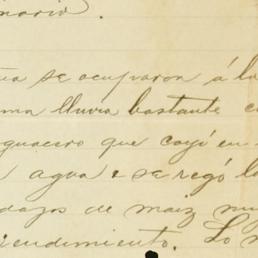 se ocuparon á la
lluvia bastante
aguacero que cayó en
agua e se regó
de maiz
rendimiento. Lo